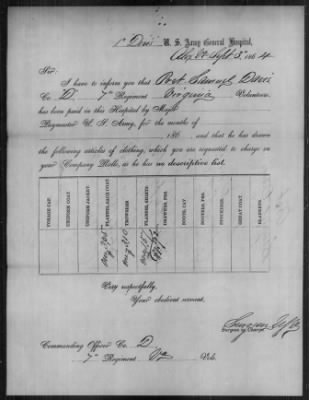 1st Divi U. S. Army General Hospital,
Alex Va Sept 5 1864
Sir:
I have to inform you that Pvt Samuel Davis
Co. D 7th Regiment Virginia Volunteers,
has been paid in this Hospital by Major
Paymaster U. S. Army, for the months of
186 , and that he has drawn
the following articles of clothing, which you are requested to charge on
your Company Rolls, as he has no descriptive list.
FORAGE CAP.
UNIFORM COAT.
UNIFORM JACKET
FLANNEL SACK COAT
TROWSERS
FLANNEL SHIRTS
DRAWERS, PRS.
BOOTS, CAV.
BOOTEES, PRS.
STOCKINGS, PRS.
GREAT COAT.
BLANKETS.
Very respectfully,
Your obedient servant,
Surgeon in Charge.
Commanding Officer Co. D
7th Regiment Va Vols.